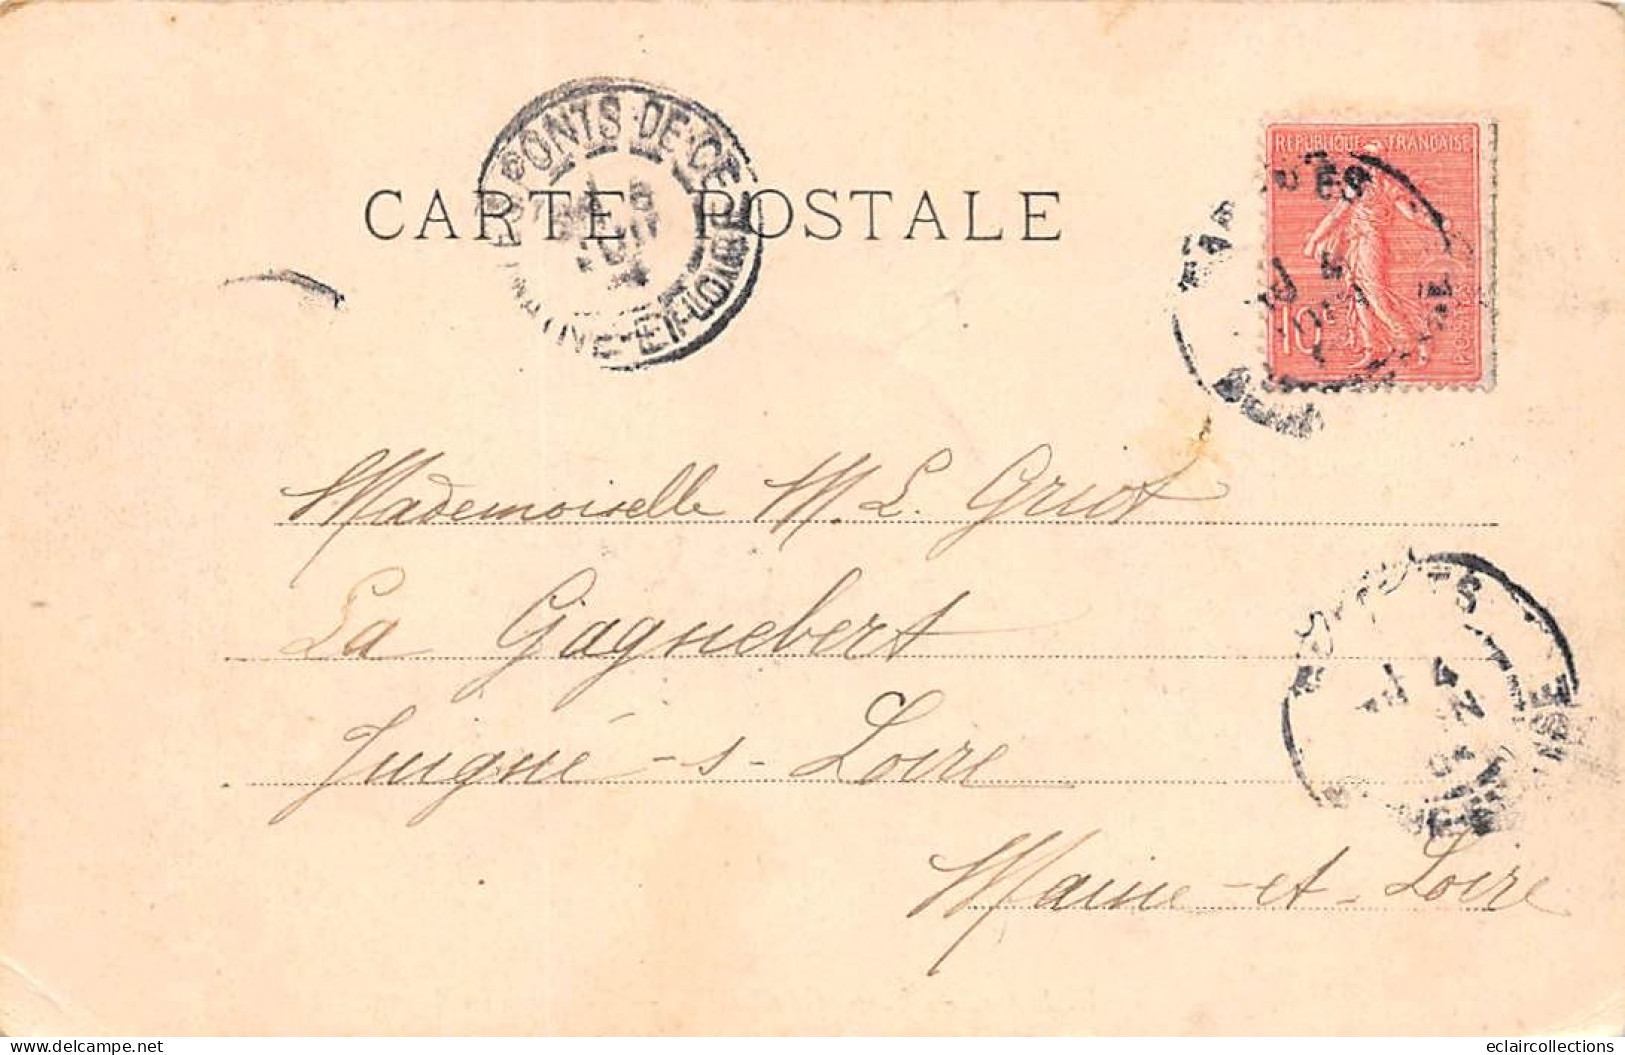 PONTS-DE-CÉ
MAINE-ET-LOIRE
CARTE POSTALE
REPUBLIQUE FRANÇAISE
10
Mademoiselle M. L. Griot
La Gagnebert
Juigné-s-Loire
Maine-et-Loire
delcampe.net
eclaircollections